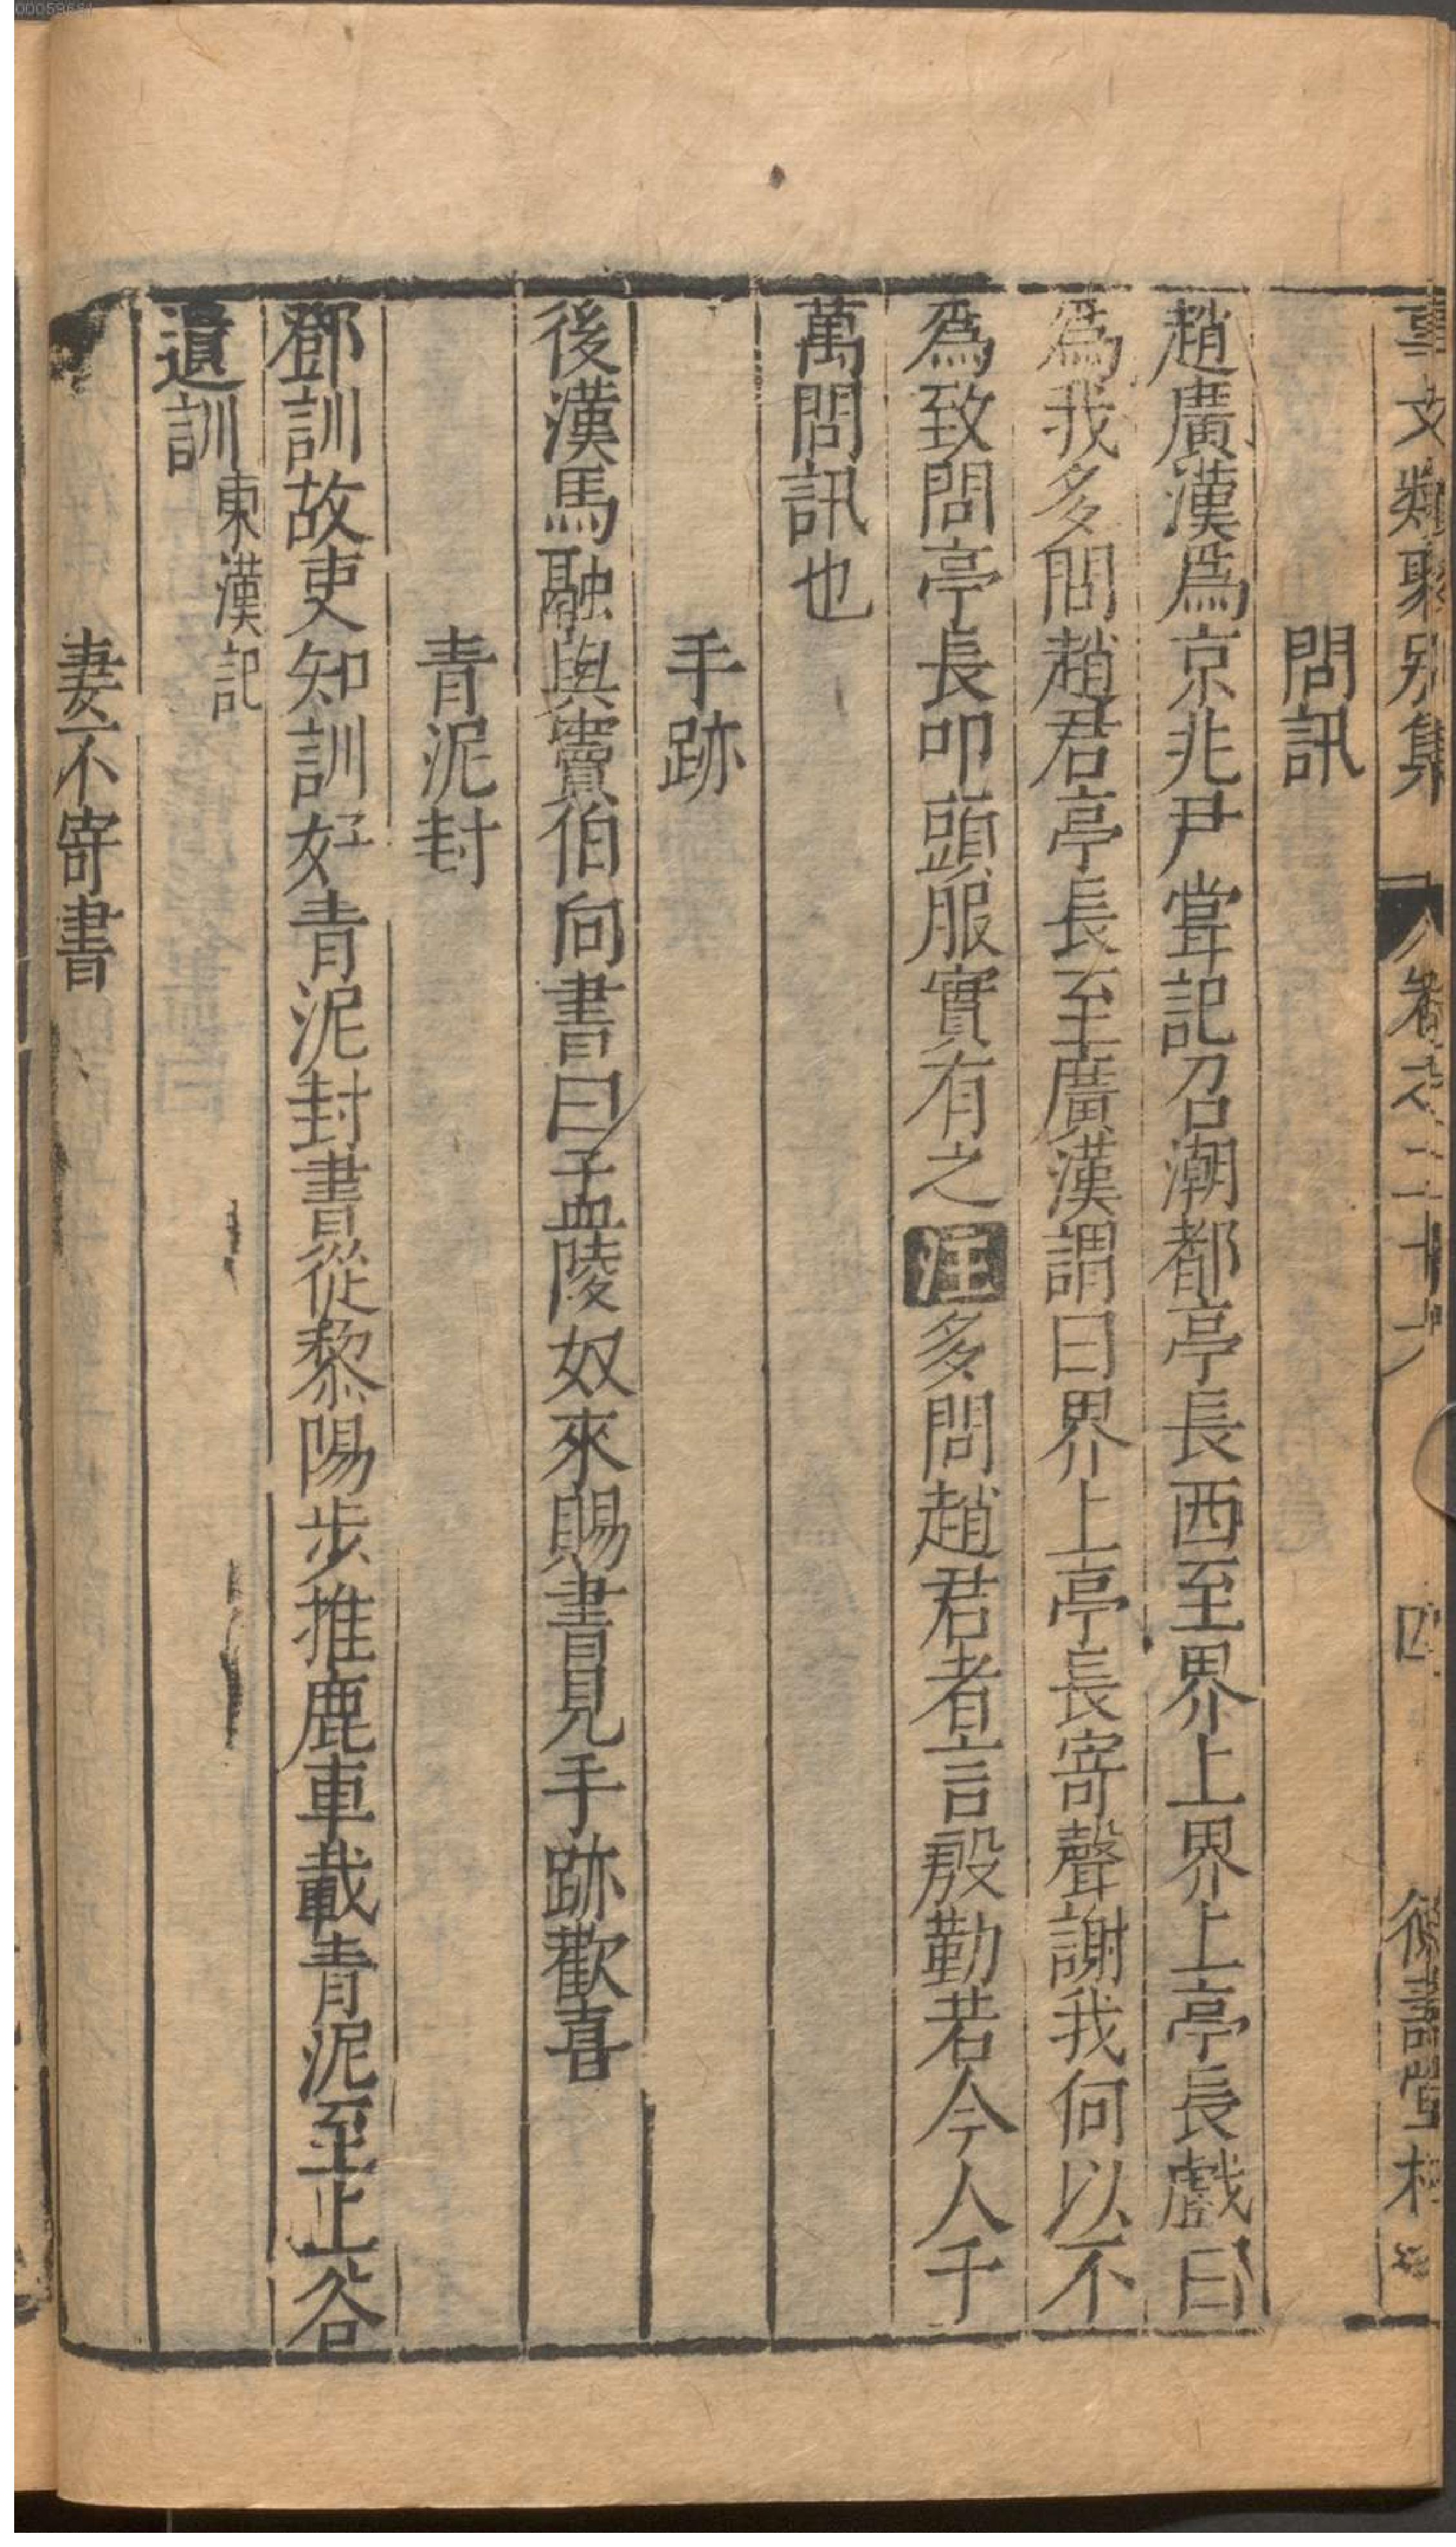 00059684
事文類聚別集 卷之二十六 四 德壽堂梓
問訊
趙廣漢爲京兆尹甞記召潮都亭長西至界上界上亭長戲曰
爲我多問趙君亭長至廣漢謂曰界上亭長寄聲謝我何以不
爲致問亭長叩頭服實有之注多問趙君者言殷勤若今人千
萬問訊也
手跡
後漢馬融與竇伯向書曰孟陵奴來賜書見手跡歡喜
青泥封
鄧訓故吏知訓好青泥封書從黎陽步推鹿車載青泥至上谷
遺訓東漢記
妻不寄書